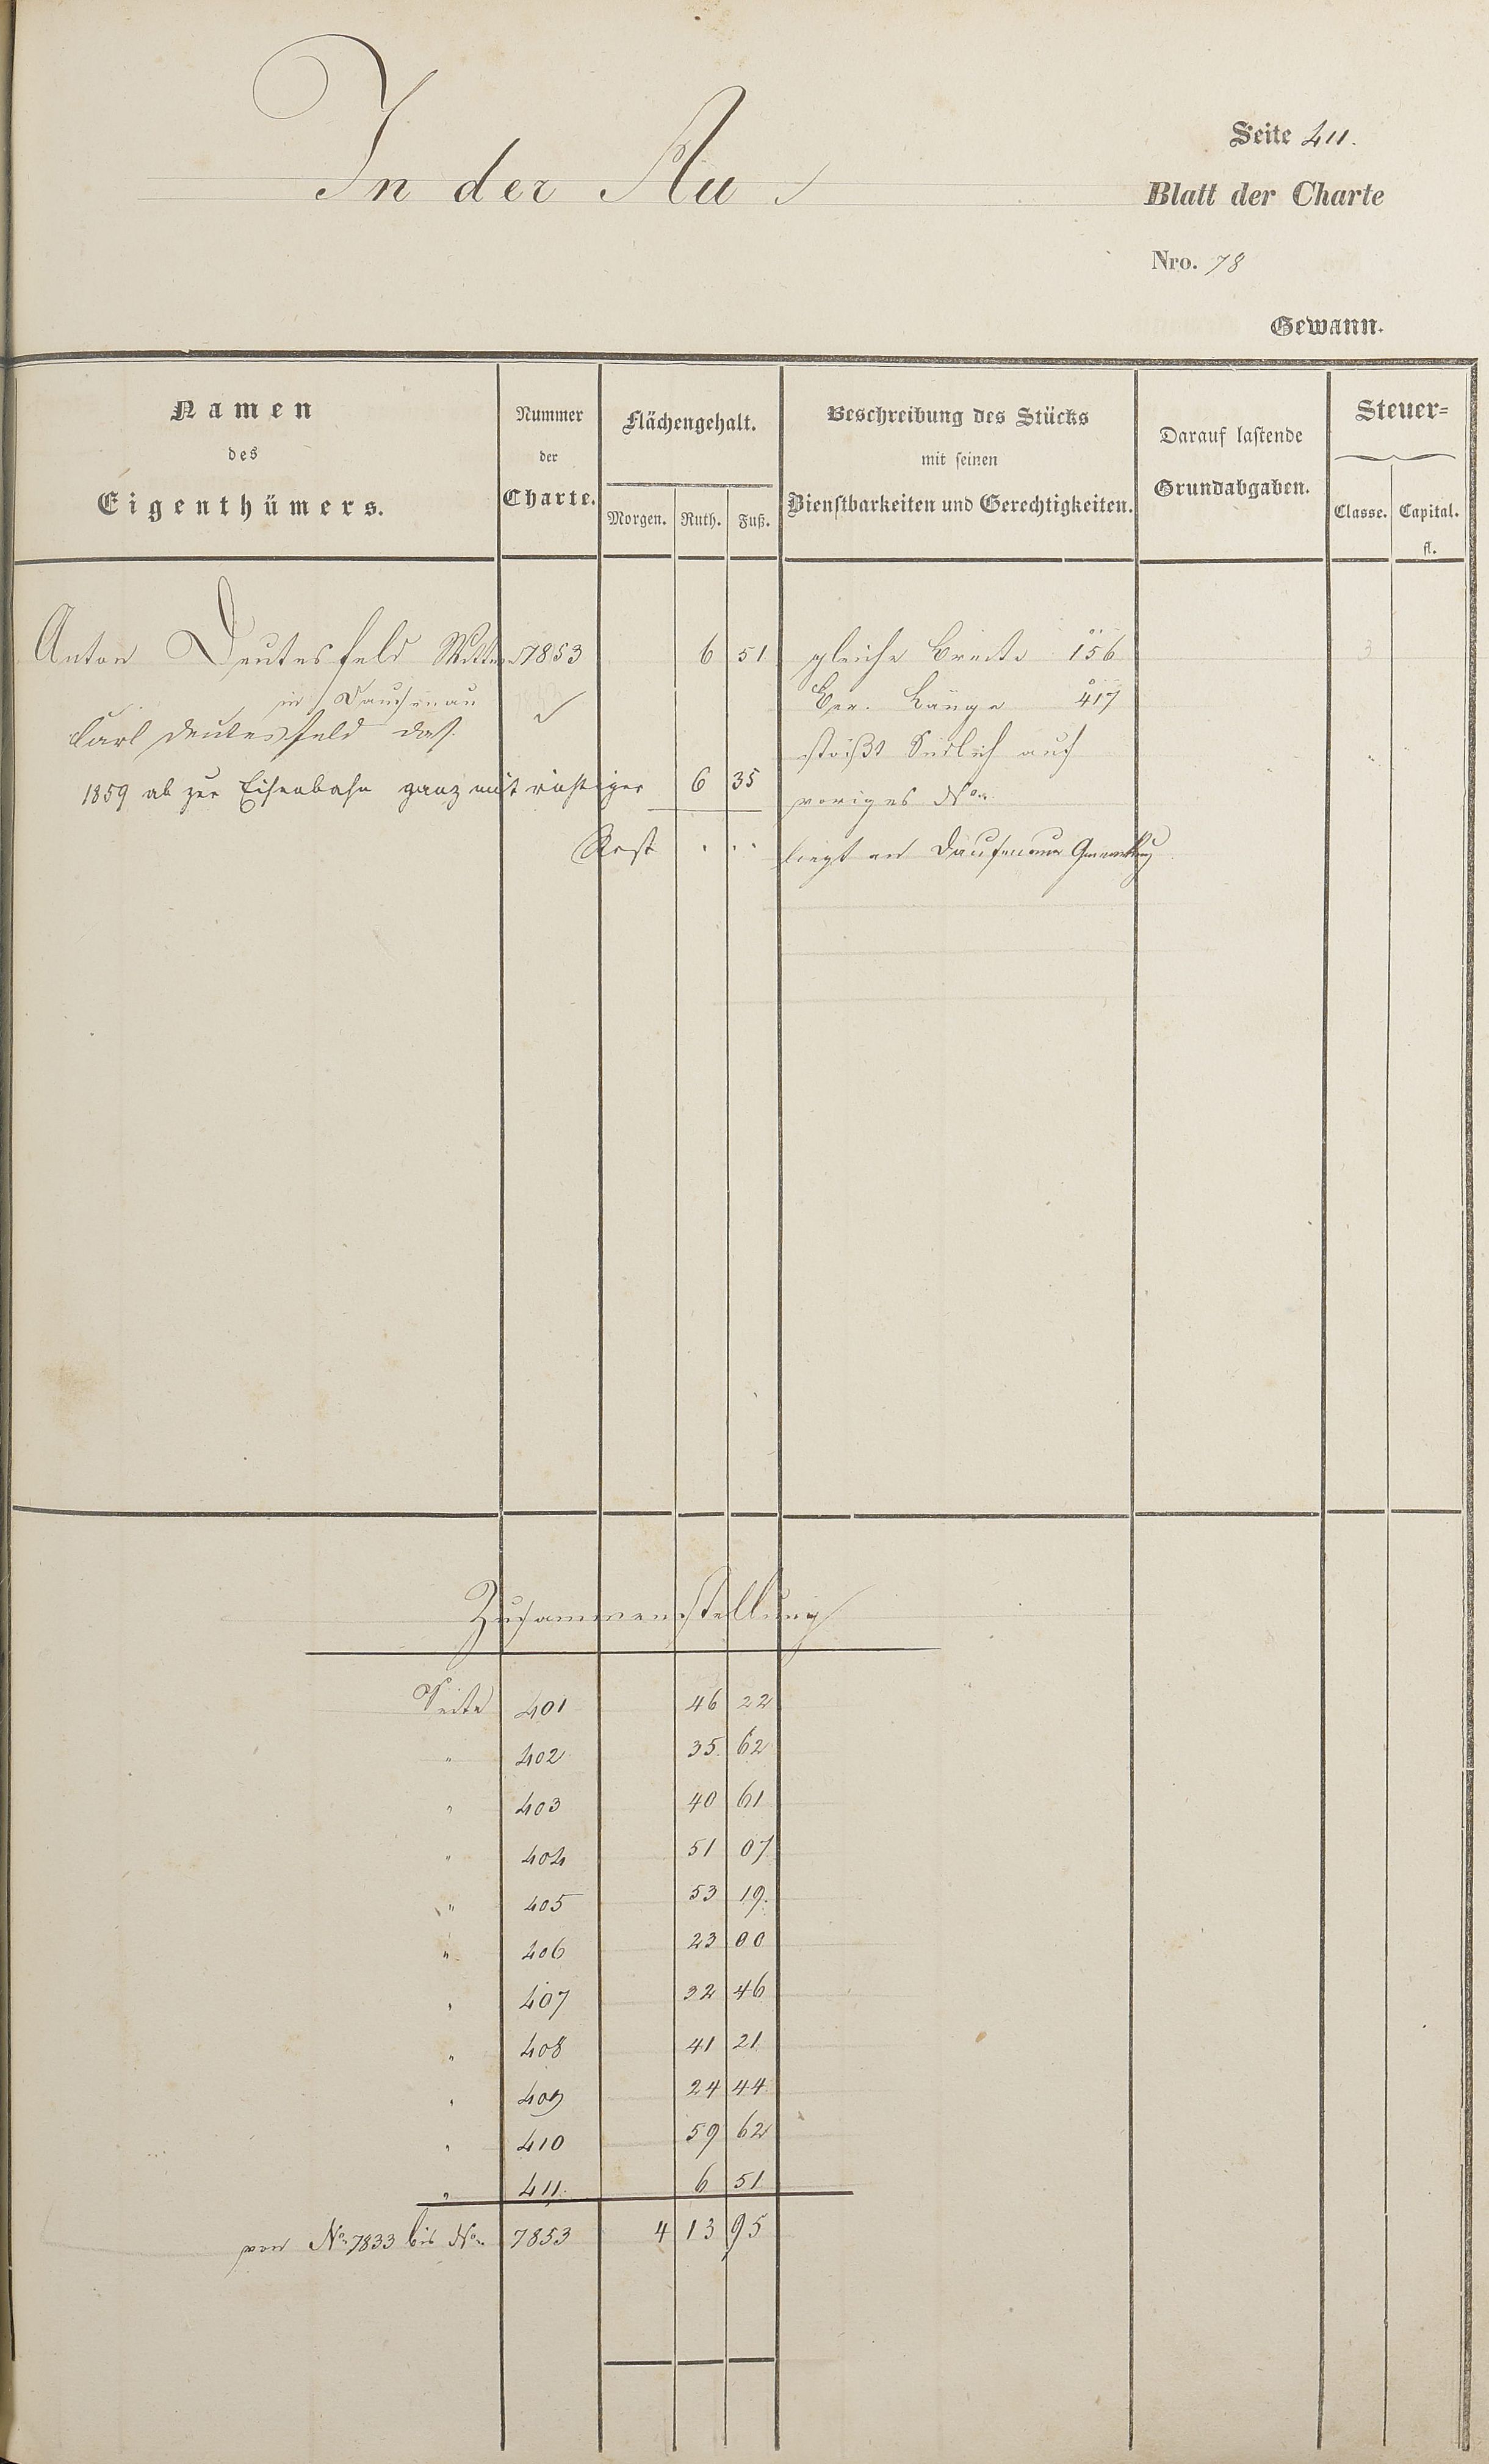 In der Au
Seite 411.
Blatt der Charte
Nro. 78
Gewann.
Namen des Eigenthümers.
Nummer der Charte.
Flächengehalt.
Morgen. Ruth. Fuß.
Beschreibung des Stücks mit seinen Dienstbarkeiten und Gerechtigkeiten.
Darauf lastende Grundabgaben.
Steuer=
Classe. Capital. fl.
Anton Deutesfeld Wittwe 7853 6 51 gleiche Breite 156 3
in Dausenau Ber. Länge 417
Carl Deutesfeld das. stößt Südlich auf
1859 ab zur Eisenbahn ganz mit richtiger 6 35 voriges No.
Rest . . . liegt an Dausenauer Gemarkung
Zusammenstellung
Seite 401 46 22
" 402 35 62
" 403 40 61
" 404 51 07
" 405 53 19.
" 406 23 00
" 407 32 46
" 408 41 21
" 409 24 44
" 410 59 62
" 411. 6 51
von No. 7833 bis No. 7853 4 13 95